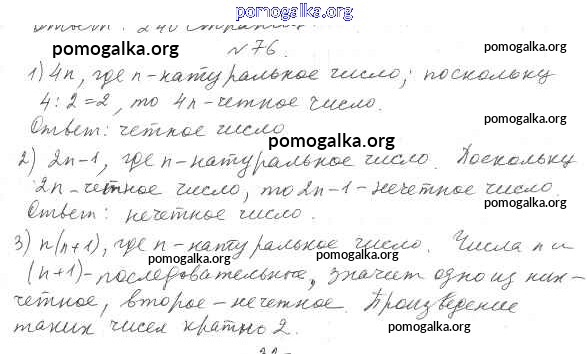 pomogalka.org
Ответ: 240 страниц.
№76.
pomogalka.org pomogalka.org
1) 4n, где n - натуральное число; поскольку
4:2=2, то 4n - четное число.
pomogalka.org
Ответ: четное число
pomogalka.org
2) 2n-1, где n - натуральное число. Поскольку
2n - четное число, то 2n-1 - нечетное число.
pomogalka.org
Ответ: нечетное число.
pomogalka.org
3) n(n+1), где n - натуральное число. Числа n и
(n+1) - последовательные, значит одно из них -
pomogalka.org
четное, второе - нечетное. Произведение
pomogalka.org
таких чисел кратно 2.
pomogalka.org